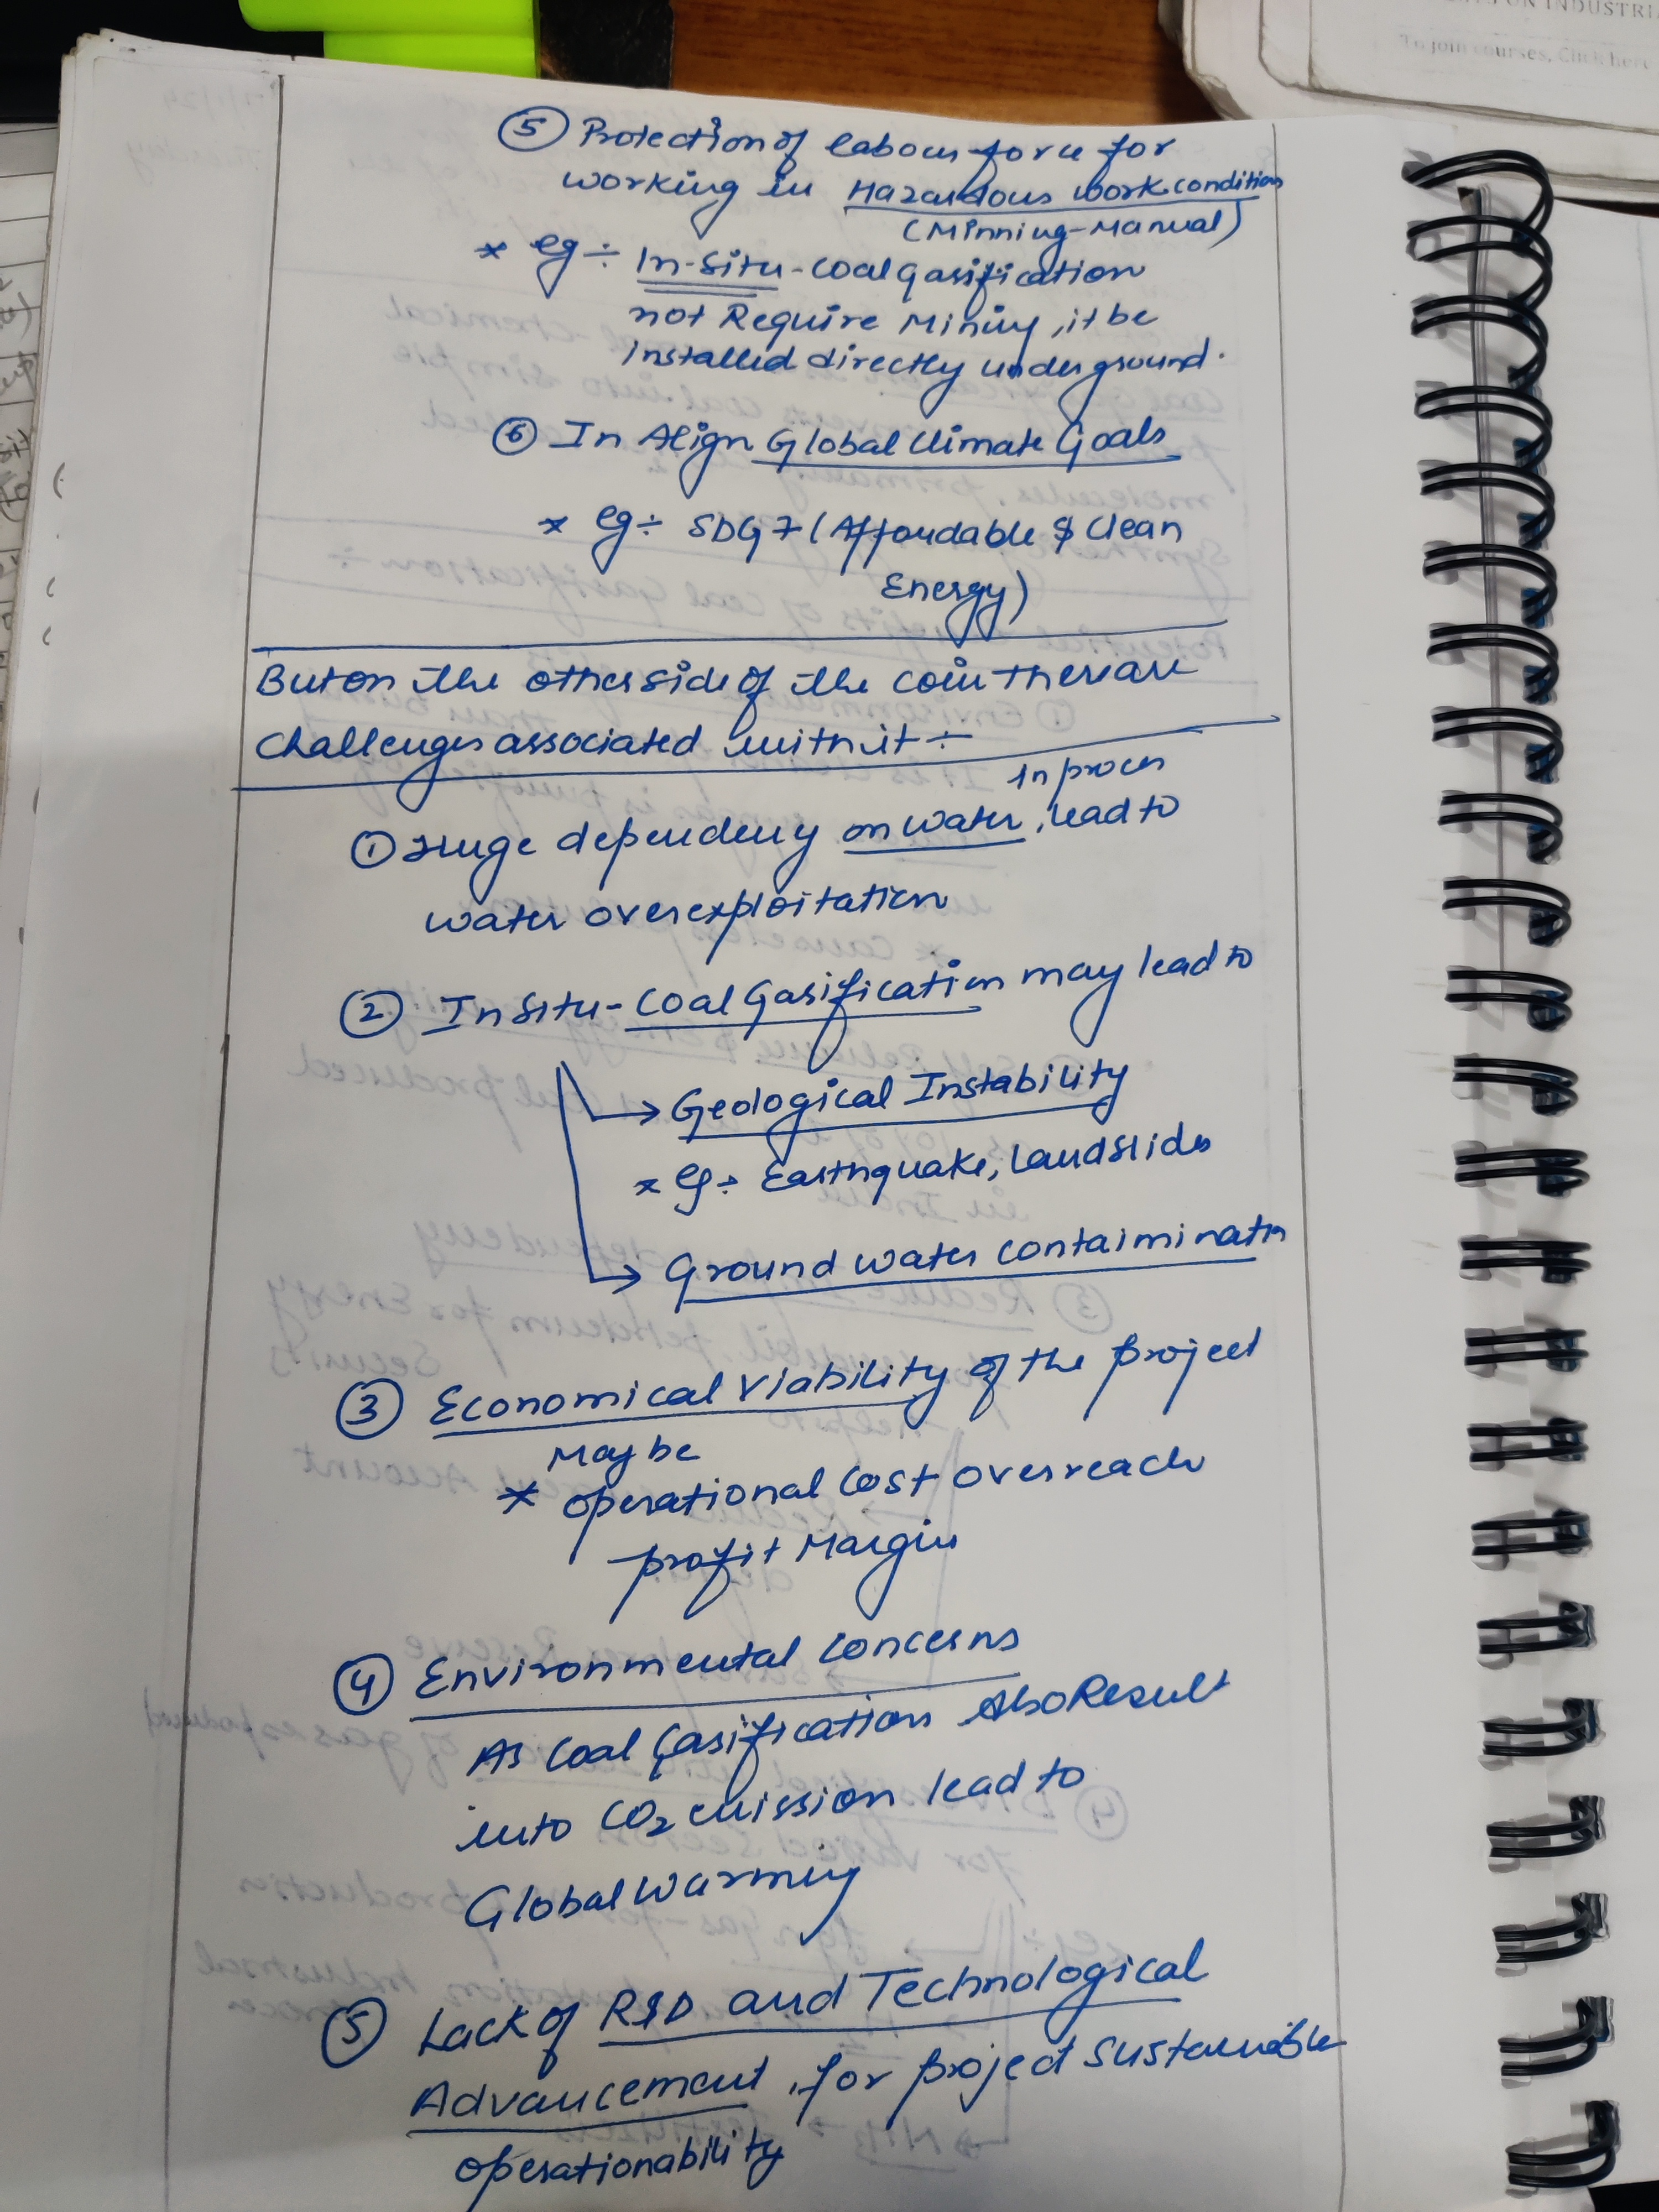 ⑤ Protection of labour force for
working in Hazardous work condition
(Minning-Manual)
* eg ÷ In-Situ-Coal gasification
not Require Mining, it be
installed directly underground.
⑥ In Align Global Climate Goals
* eg ÷ SDG 7 (Affordable & Clean
Energy)
But on the other side of the coin there are
challenges associated with it ÷
In process
① Huge dependency on water, lead to
water overexploitation
② In Situ-Coal Gasification may lead to
→ Geological Instability
* eg ÷ Earthquake, Landslides
→ Ground water contaimination
③ Economical Viability of the project
May be
* operational cost overreach
profit Margin
④ Environmental Concerns
As Coal Gasification Also Result
into CO₂ emission lead to
Global Warming
⑤ Lack of R&D and Technological
Advancement, for project sustainable
operationability
TS ON INDUSTRI
To join courses, Click here